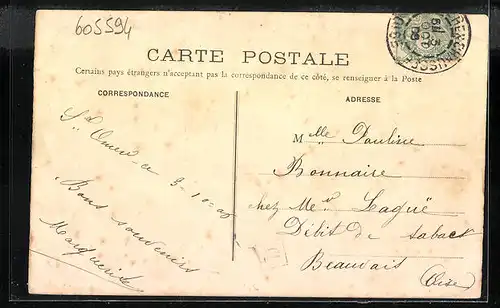 605594
CARTE POSTALE
Certains pays étrangers n'acceptant pas la correspondance de ce côté, se renseigner à la Poste
CORRESPONDANCE
St Omer le 3-10-08
Bons souvenirs
Marguerite
ADRESSE
Mlle Pauline
Bonnaire
chez Mer Laguë
Débit de tabacs
Beauvais (Oise)